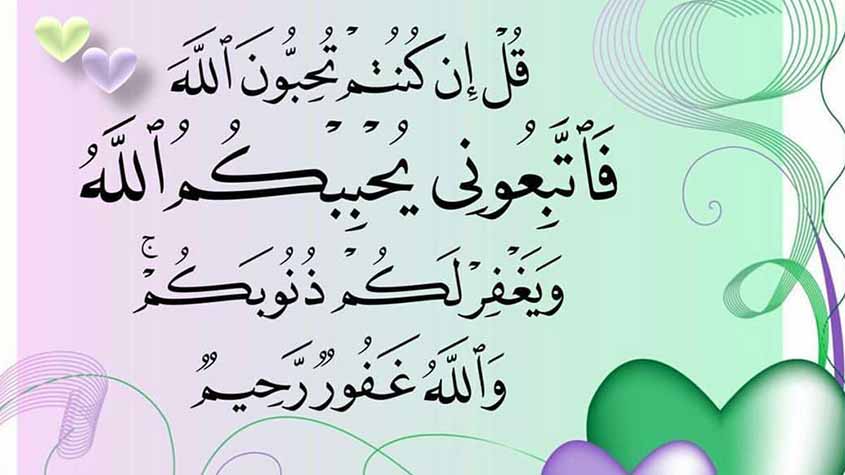 قُلْ إِن كُنتُمْ تُحِبُّونَ ٱللَّهَ
فَٱتَّبِعُونِى يُحْبِبْكُمُ ٱللَّهُ
وَيَغْفِرْ لَكُمْ ذُنُوبَكُمْ ۚ
وَٱللَّهُ غَفُورٌ رَّحِيمٌ